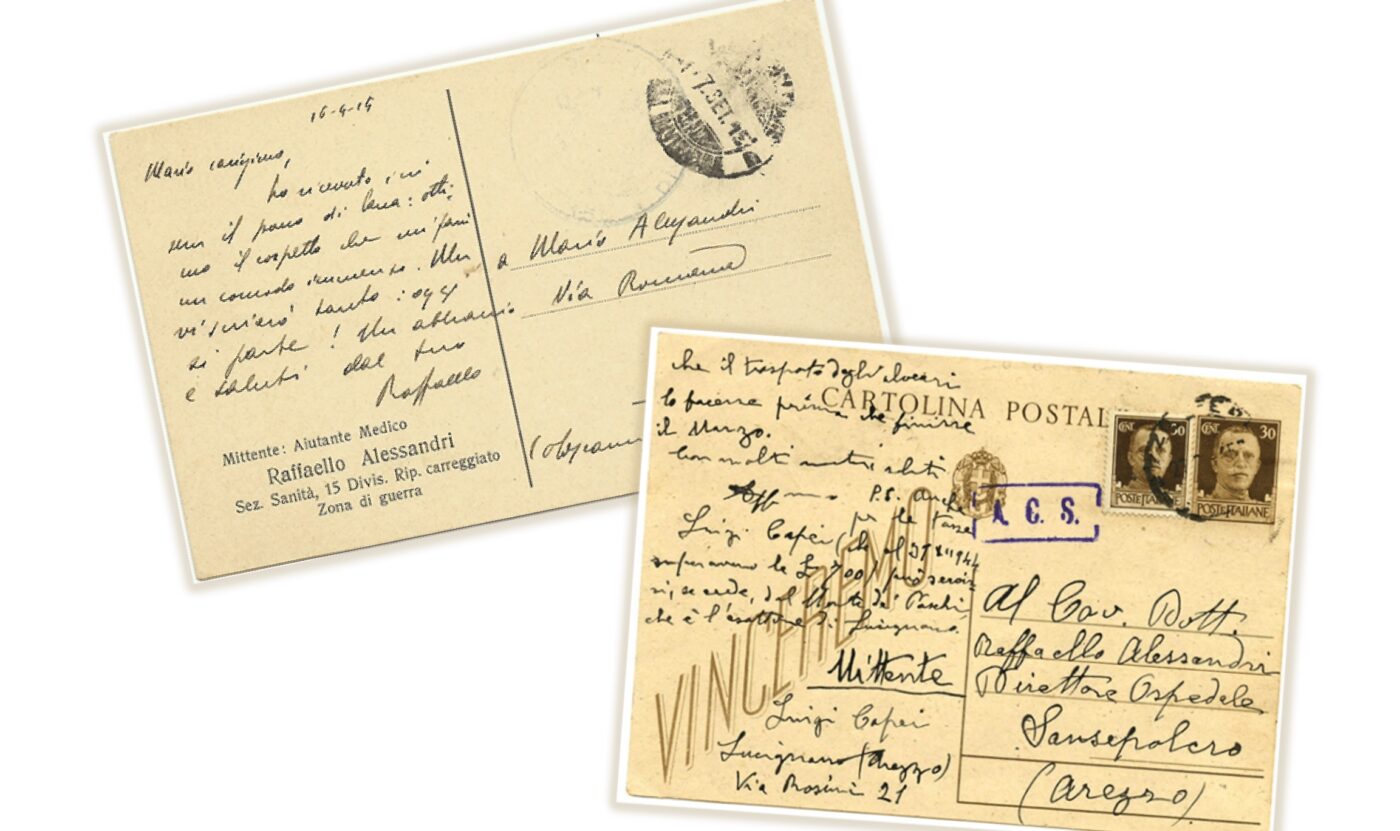 16-9-15
Mario carissimo,
ho ricevuto ieri
sera il pacco di lana: otti-
mo il corpetto che mi farà
un comodo immenso. Un
vi scriverò tanto: oggi
si parte! Un abbraccio
e saluti dal tuo
Raffaello
Mittente: Aiutante Medico
Raffaello Alessandri
Sez. Sanità, 15 Divis. Rip. carreggiato
Zona di guerra
7.SET.15
a Mario Alessandri
Via Romana
che il trasporto degli
lo facesse prima che finisse
il Marzo.
Con molti saluti
P.S. Anche
Luigi Capei per le tasse
superavano le L 700) può
si, se crede, del Monte dei Paschi,
che è l'esattore di Lucignano.
Mittente
Luigi Capei
Lucignano (Arezzo)
Via Rosini 21
CARTOLINA POSTAL
VINCEREMO
A. C. S.
CENT. 30
POSTE ITALIANE
CENT. 30
POSTE ITALIANE
Al Cav. Dott.
Raffaello Alessandri
Direttore Ospedale
Sansepolcro
(Arezzo)